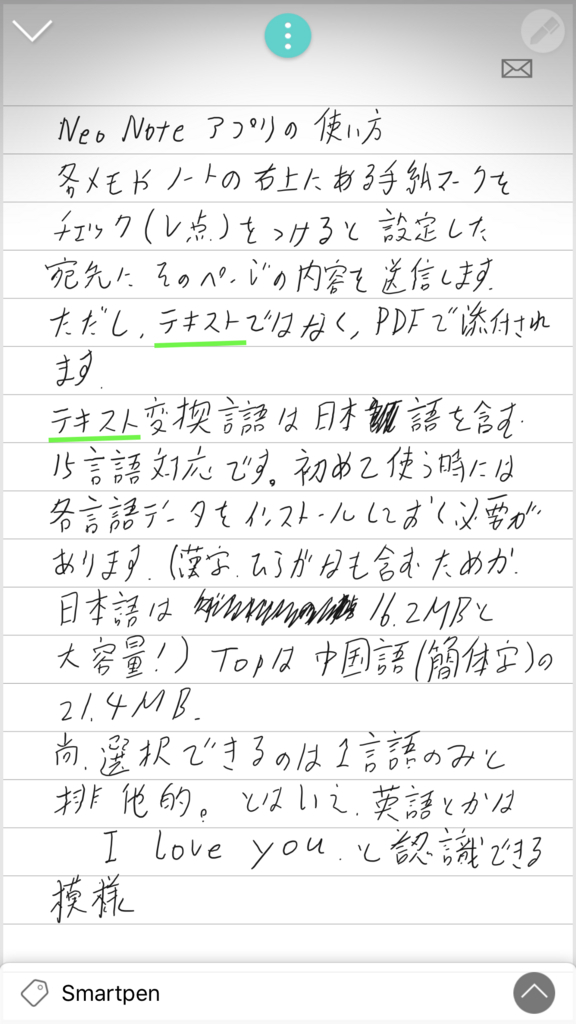 Neo Note アプリの使い方
各メモや ノートの右上にある手紙マークを
チェック(レ点)をつけると設定した
宛先に そのページの内容を送信します.
ただし, テキストではなく, PDFで添付され
ます.
テキスト変換言語は日本語を含む
15言語対応です。初めて使う時には
各言語データをインストールしておく必要が
あります.(漢字.ひらがなも含むためか.
日本語は 16.2MBと
大容量!) Topは中国語(簡体字)の
21.4MB.
尚.選択できるのは1言語のみと
排他的。とはいえ.英語とかは
I love you.と認識できる
模様
Smartpen